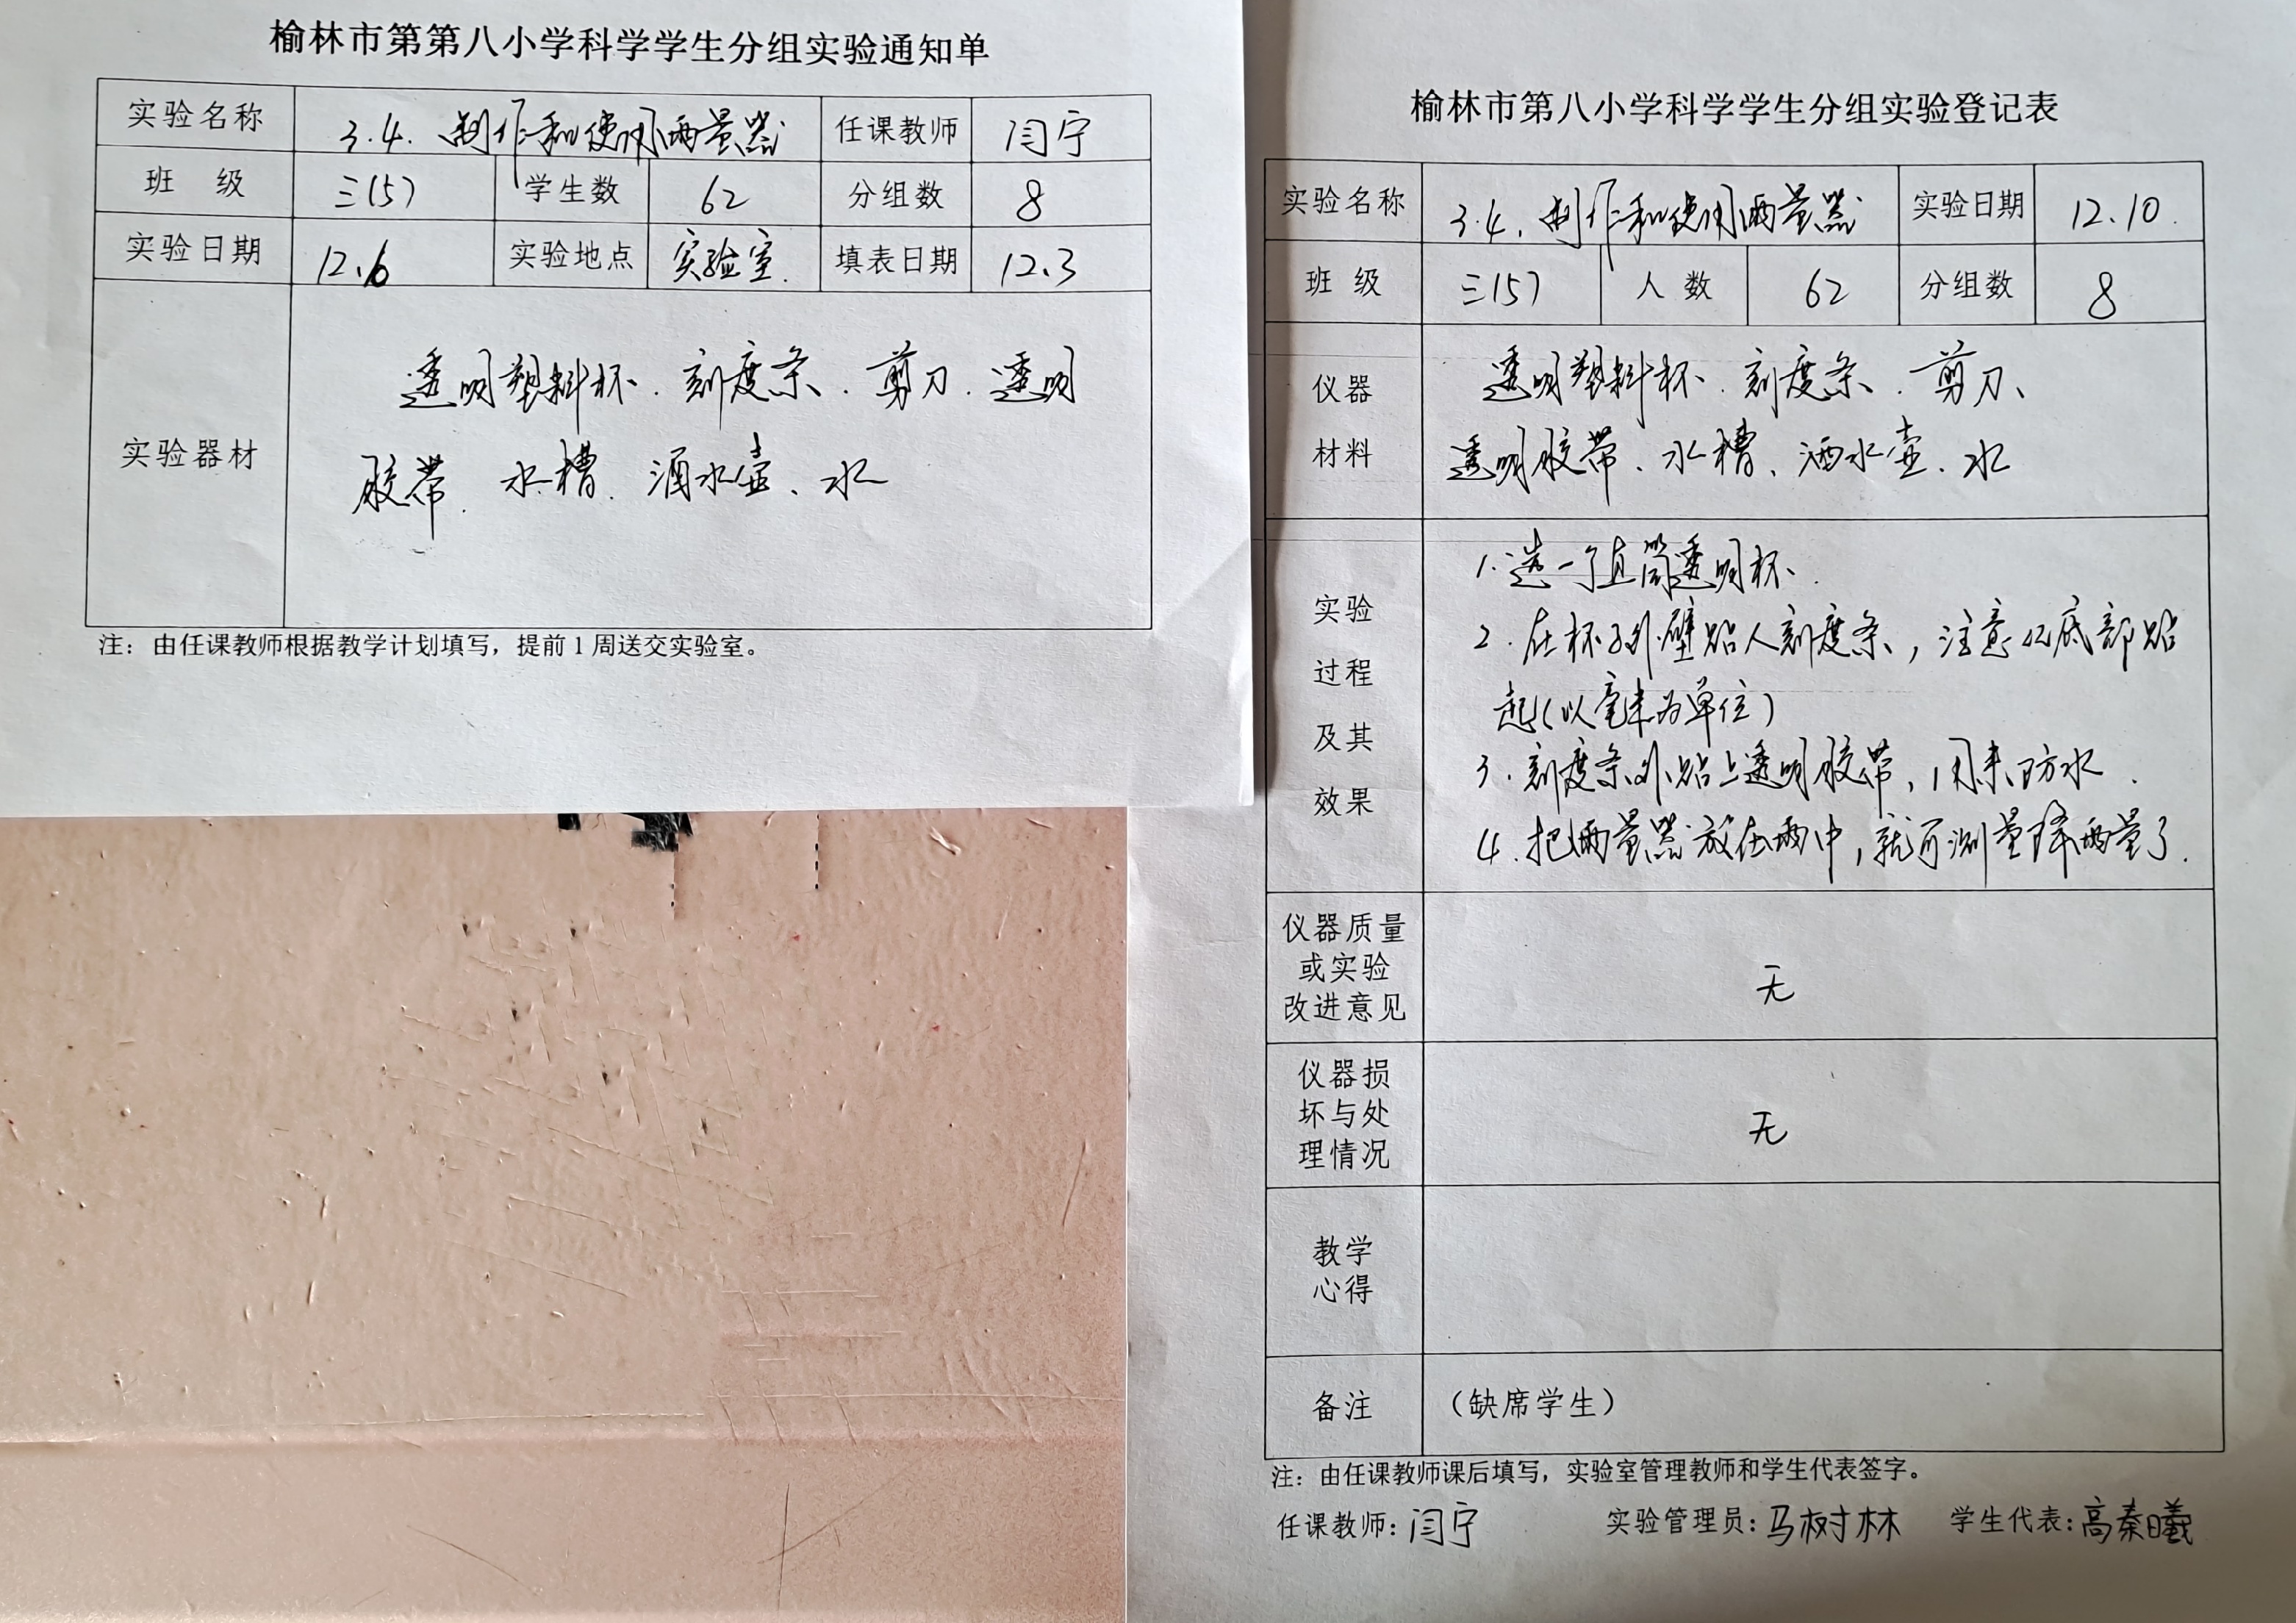 榆林市第第八小学科学学生分组实验通知单
实验名称 3.4.制作和使用雨量器 任课教师 闫宁
班 级 三(5) 学生数 62 分组数 8
实验日期 12.6 实验地点 实验室. 填表日期 12.3
实验器材
透明塑料杯、刻度条、剪刀、透明
胶带、水槽、洒水壶、水
注：由任课教师根据教学计划填写，提前1周送交实验室。
榆林市第八小学科学学生分组实验登记表
实验名称 3.4.制作和使用雨量器 实验日期 12.10.
班 级 三(5) 人 数 62 分组数 8
仪器
材料
透明塑料杯、刻度条、剪刀、
透明胶带、水槽、洒水壶、水
实验
过程
及其
效果
1.选一个直筒透明杯、
2.在杯子外壁贴入刻度条，注意从底部贴
起(以毫米为单位)
3.刻度条外贴上透明胶带，用来防水.
4.把雨量器放在雨中，就可测量降雨量了.
仪器质量
或实验
改进意见
无
仪器损
坏与处
理情况
无
教学
心得
备注 （缺席学生）
注：由任课教师课后填写，实验室管理教师和学生代表签字。
任课教师：闫宁 实验管理员：马树林 学生代表：高秦曦